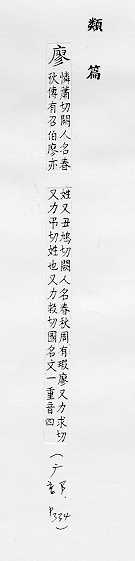 類篇
廖
憐蕭切闕人名春
秋傳有召伯廖亦
姓又丑鳩切闕人名春秋周有瑕廖又力求切
又力弔切姓也又力救切國名文一重音四
P.334